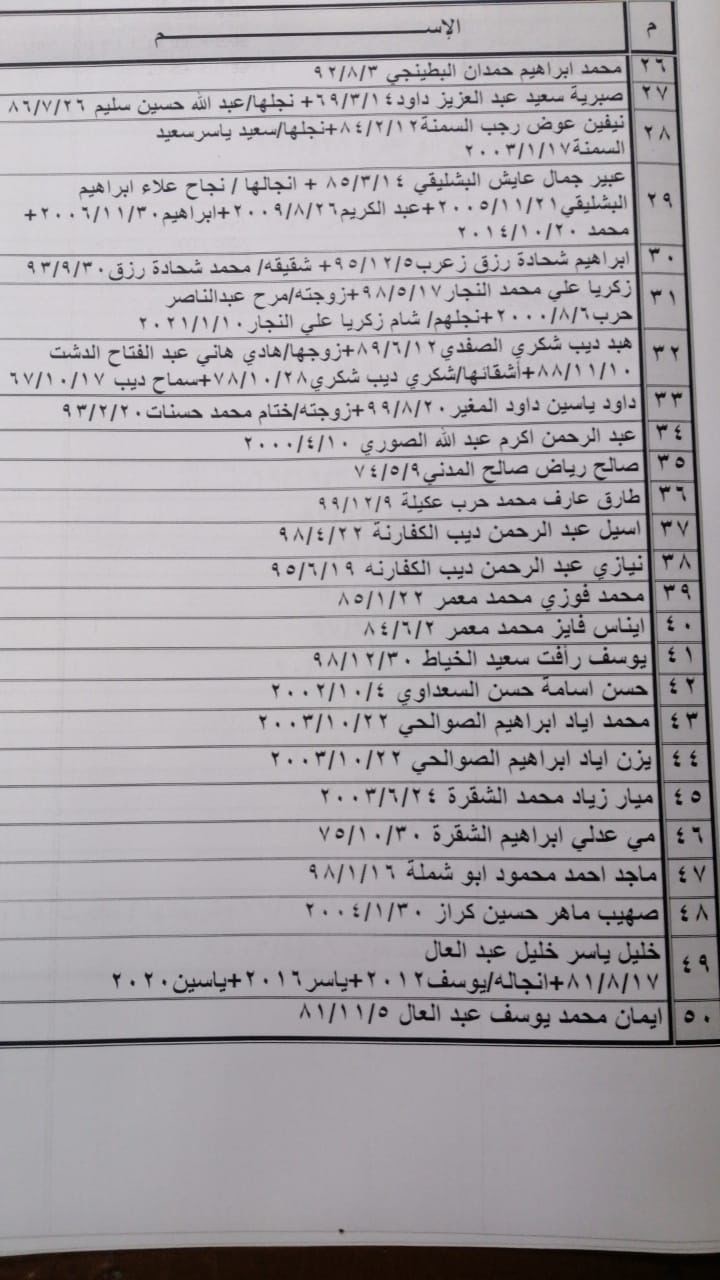 م الإســـــــــــــم
٢٦ محمد ابراهيم حمدان البطينجي ٩٢/٨/٣
٢٧ صبرية سعيد عبد العزيز داود٦٩/٣/١٤+ نجلها/عبد الله حسين سليم ٨٦/٧/٢٦
٢٨ نيفين عوض رجب السمنة٨٤/٢/١٢+نجلها/سعيد ياسرسعيد
السمنة٢٠٠٣/١/١٧
٢٩ عبير جمال عايش البشليقي ٨٥/٣/١٤ + انجالها / نجاح علاء ابراهيم
البشليقي٢٠٠٥/١١/٢١+عبد الكريم٢٠٠٩/٨/٢٦+ابراهيم٢٠٠٦/١١/٣٠+
محمد ٢٠١٤/١٠/٢٠
٣٠ ابراهيم شحادة رزق زعرب٩٥/١٢/٥+ شقيقه/ محمد شحادة رزق٩٣/٩/٣٠
٣١ زكريا علي محمد النجار٩٨/٥/١٧+زوجته/مرح عبدالناصر
حرب٢٠٠٠/٨/٦+نجلهم/ شام زكريا علي النجار٢٠٢١/١/١٠
٣٢ هبد ديب شكري الصفدي٨٩/٦/١٢+زوجها/هادي هاني عبد الفتاح الدشت
٨٨/١١/١٠+أشقائها/شكري ديب شكري٧٨/١٠/٢٨+سماح ديب ٦٧/١٠/١٧
٣٣ داود ياسين داود المغير٩٩/٨/٢٠+زوجته/ختام محمد حسنات٩٣/٢/٢٠
٣٤ عبد الرحمن اكرم عبد الله الصوري ٢٠٠٠/٤/١٠
٣٥ صالح رياض صالح المدني٧٤/٥/٩
٣٦ طارق عارف محمد حرب عكيلة ٩٩/١٢/٩
٣٧ اسيل عبد الرحمن ديب الكفارنة ٩٨/٤/٢٢
٣٨ نيازي عبد الرحمن ديب الكفارنه ٩٥/٦/١٩
٣٩ محمد فوزي محمد معمر ٨٥/١/٢٢
٤٠ ايناس فايز محمد معمر ٨٤/٦/٢
٤١ يوسف رأفت سعيد الخياط ٩٨/١٢/٣٠
٤٢ حسن اسامة حسن السعداوي ٢٠٠٢/١٠/٤
٤٣ محمد اياد ابراهيم الصوالحي ٢٠٠٣/١٠/٢٢
٤٤ يزن اياد ابراهيم الصوالحي ٢٠٠٣/١٠/٢٢
٤٥ ميار زياد محمد الشقرة ٢٠٠٣/٦/٢٤
٤٦ مي عدلي ابراهيم الشقرة ٧٥/١٠/٣٠
٤٧ ماجد احمد محمود ابو شملة ٩٨/١/١٦
٤٨ صهيب ماهر حسين كراز ٢٠٠٤/١/٣٠
٤٩ خليل ياسر خليل عبد العال
٨١/٨/١٧+انجاله/يوسف٢٠١٢+ياسر٢٠١٦+ياسين٢٠٢٠
٥٠ ايمان محمد يوسف عبد العال ٨١/١١/٥